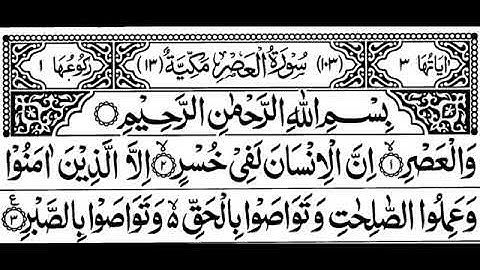 اٰيَاتُهَا ٣ (١٠٣) سُوْرَةُ الْعَصْرِ مَكِّيَّةٌ (١٣) رُكُوْعُهَا ١
بِسْمِ اللهِ الرَّحْمٰنِ الرَّحِيْمِ
وَالْعَصْرِ ۙ‏﴿۱﴾ اِنَّ الْاِنْسَانَ لَفِىْ خُسْرٍ ۙ‏﴿۲﴾ اِلَّا الَّذِيْنَ اٰمَنُوْا
وَعَمِلُوا الصّٰلِحٰتِ وَتَوَاصَوْا بِالْحَقِّ ۙ۬ وَتَوَاصَوْا بِالصَّبْرِ ‏﴿۳﴾ ع